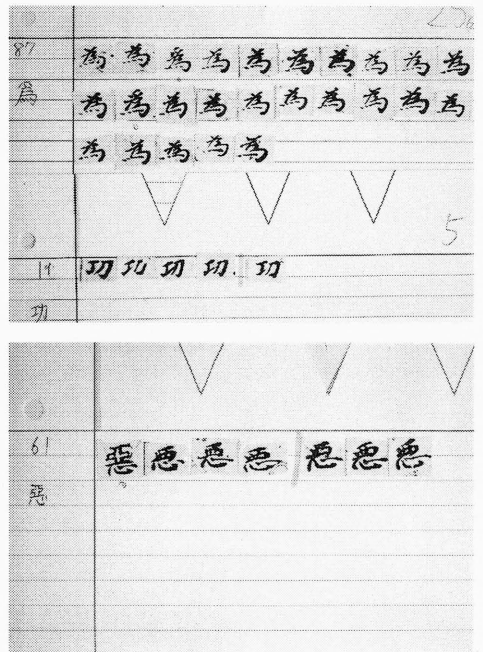 87 為 為 為 為 為 為 為 為 為 為
爲 為 為 為 為 為 為 為 為 為 為
為 為 為 為 為
5
19 功 功 功 功 功
功
61 惡 悪 悪 悪 悪 悪 悪
惡